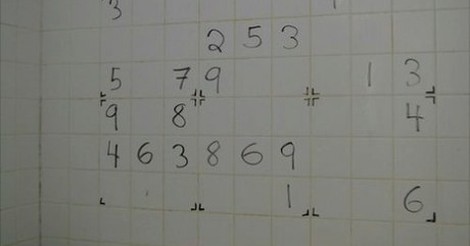 3
2 5 3
5 7 9 1 3
9 8 4
4 6 3 8 6 9
1 6